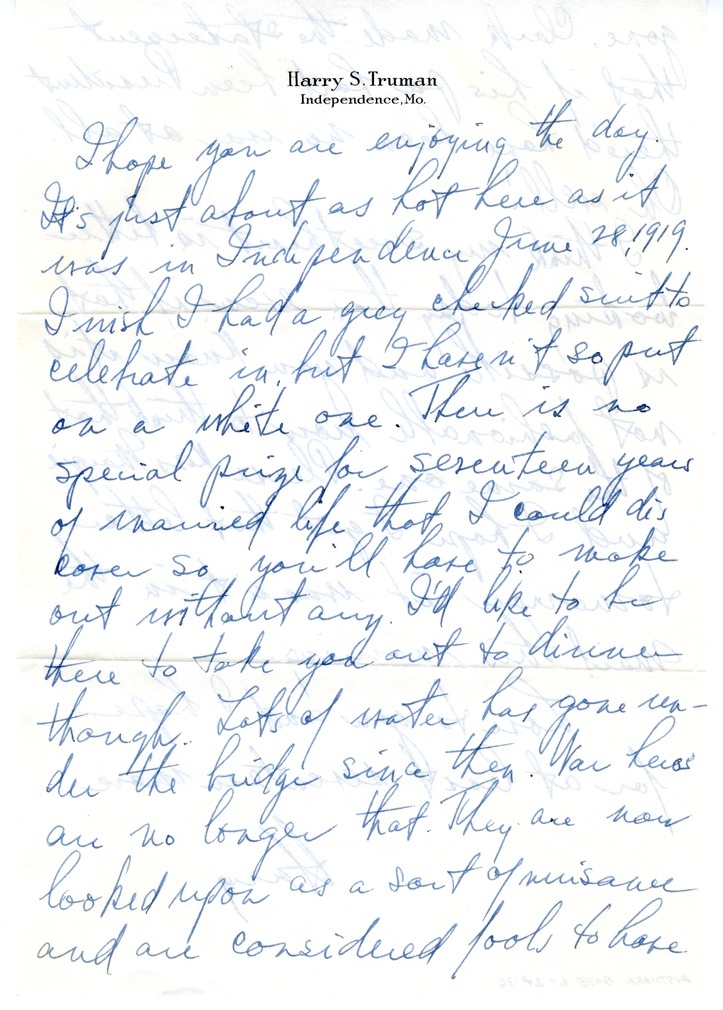 Harry S. Truman
Independence, Mo.
I hope you are enjoying the day.
It's just about as hot here as it
was in Independence June 28, 1919.
I wish I had a grey checked suit to
celebrate in, but I haven't so put
on a white one. There is no
special prize for seventeen years
of married life that I could dis
cover so you'll have to make
out without any. I'd like to be
there to take you out to dinner
though. Lots of water has gone un-
der the bridge since then. War heros
are no longer that. They are now
looked upon as a sort of nuisance
and are considered fools to have